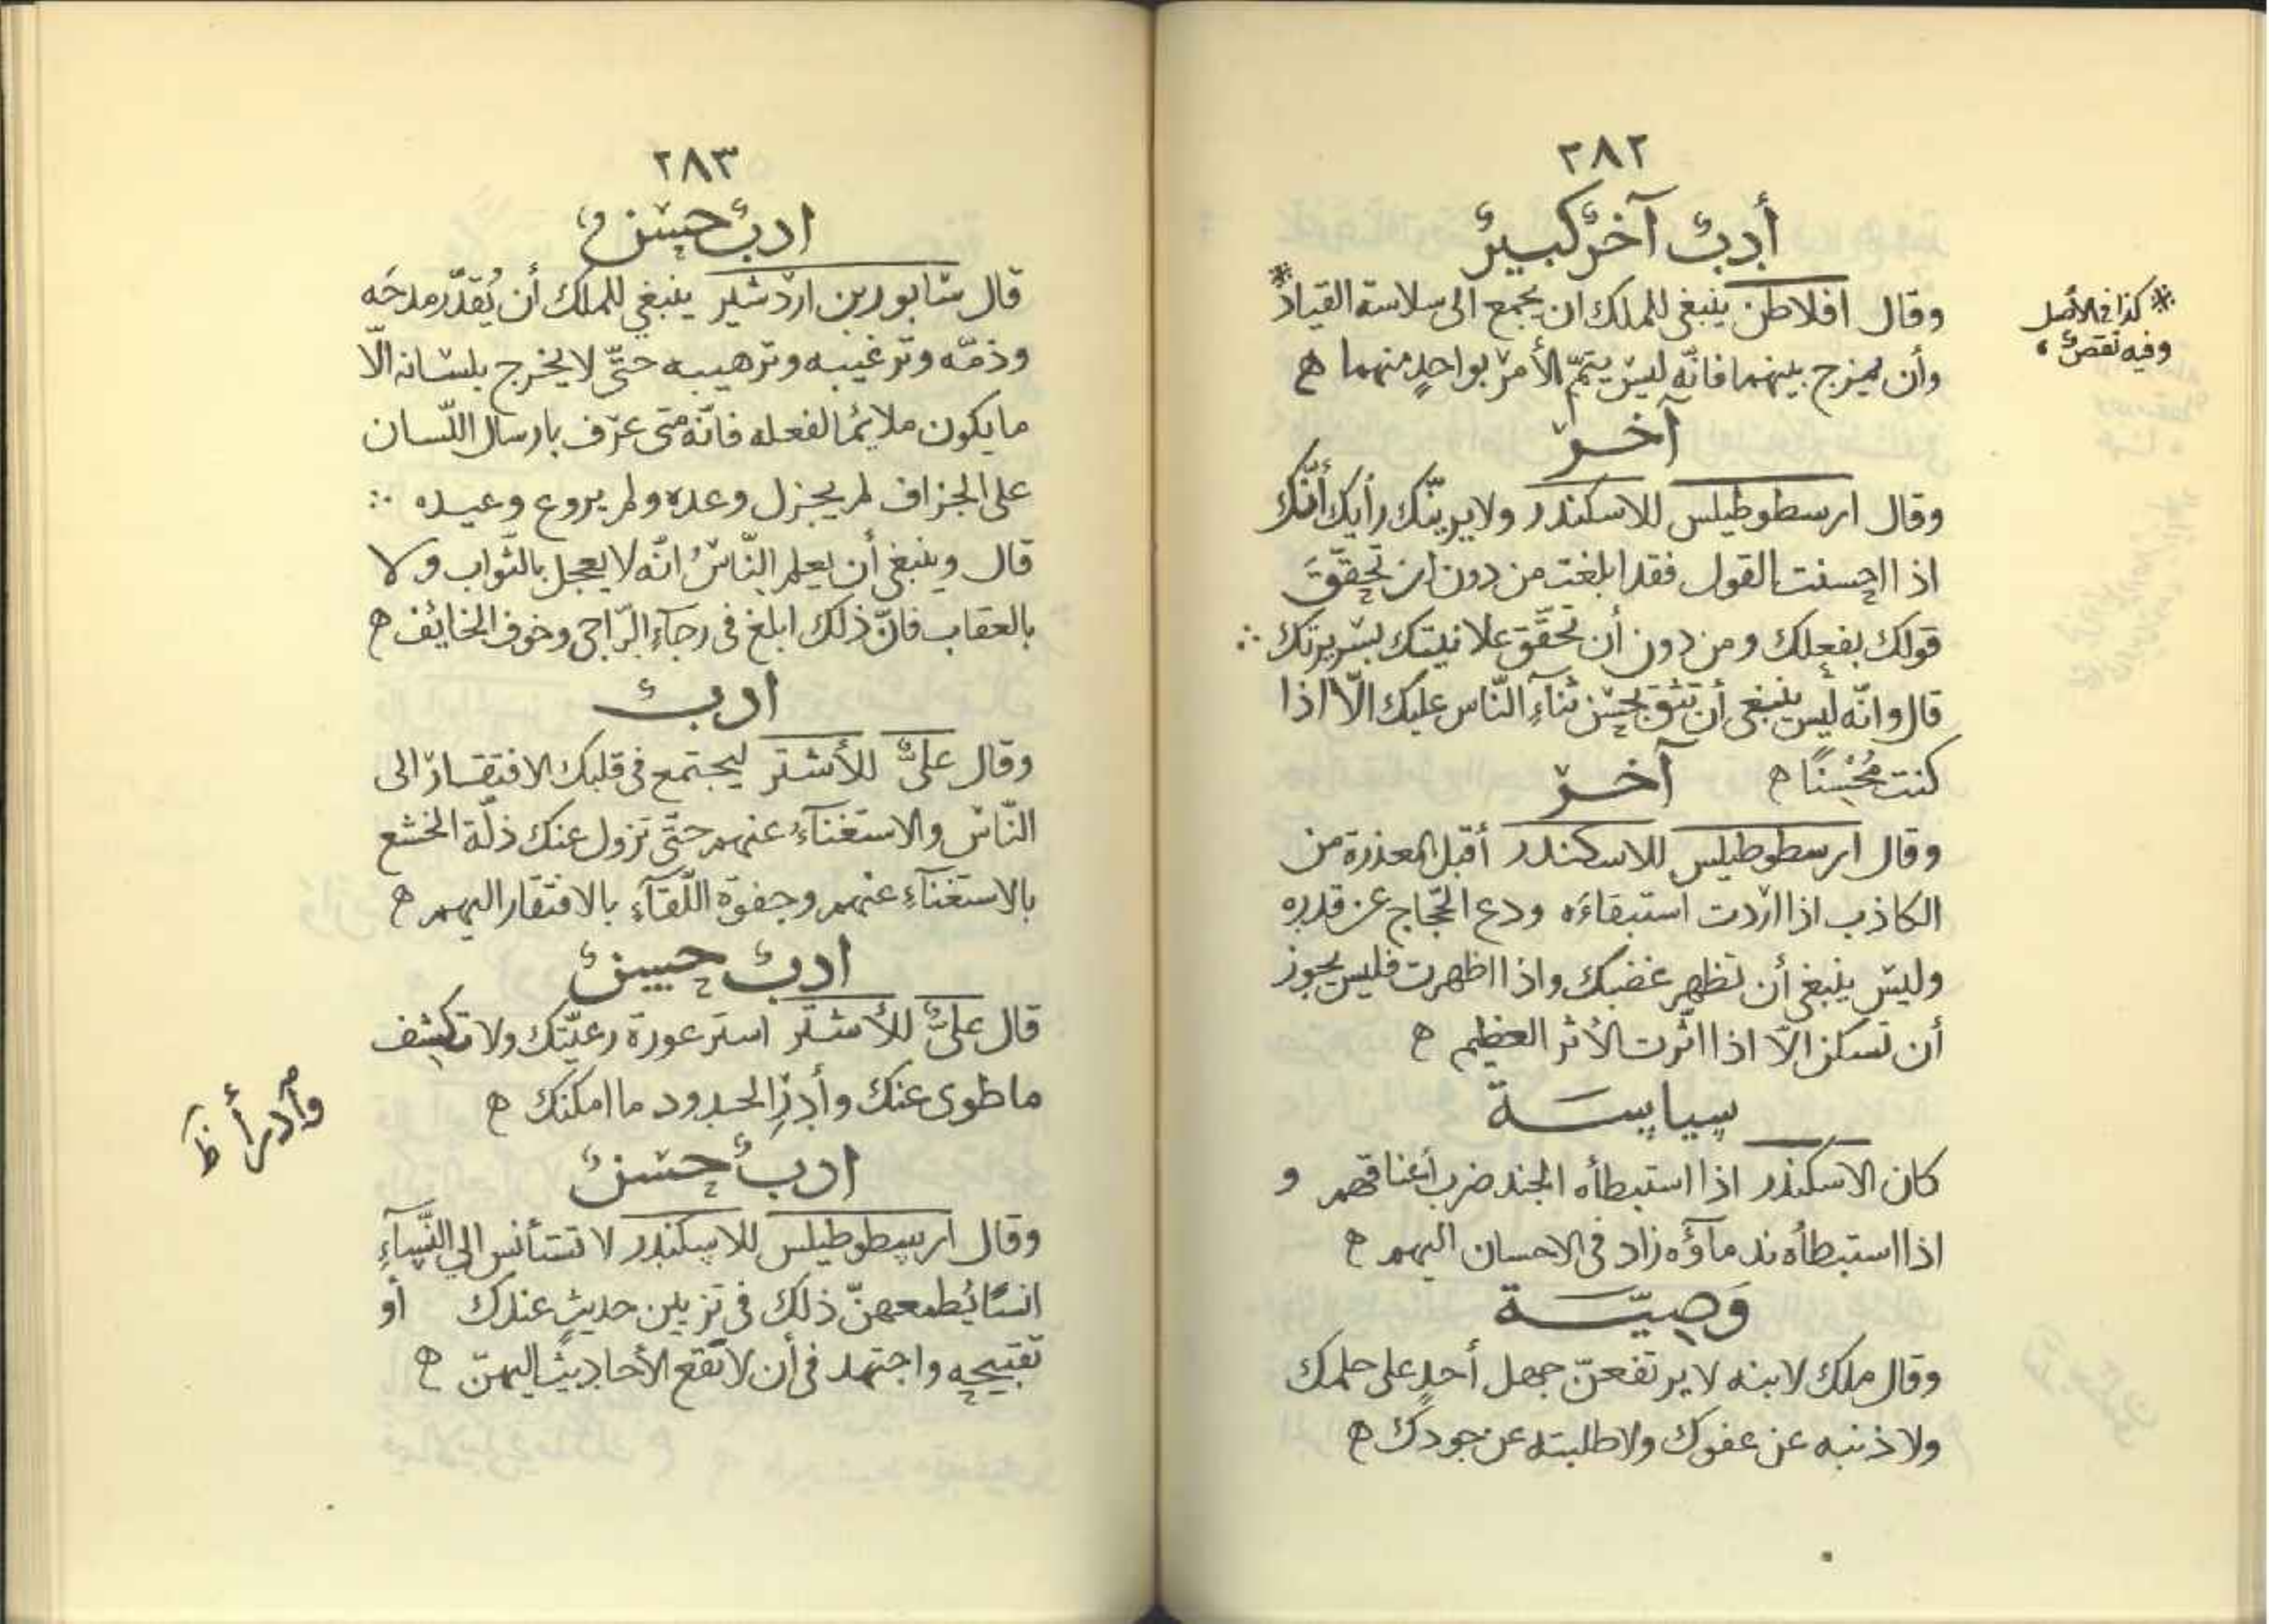 ٢٨٢
أدبٌ آخرُ كبيرٌ
وقال افلاطن ينبغى للملك ان يجمع الى سلاسة القياد*
وأن يمزج بينهما فانّه ليس يتمّ الأمر بواحدٍ منهما ه
* كذا فى الأصل
وفيه نقصٌ ،
آخر
وقال ارسطوطيلس للاسكندر ولا يرينّك رأيك أنّك
اذا احسنت القول فقد ابلغت من دون ان تحقّقَ
قولك بفعلك ومن دون أن تحقّق علانيتك بسريرتك ∴
قال وانّه ليس ينبغى أن تثق بحسن ثنآءِ النّاس عليك الّا اذا
كنت مُحْسِنًا ه
آخر
وقال ارسطوطيلس للاسكندر أقبل المعذرة من
الكاذب اذا اردت استبقاءَه ودع الحّجاج عن قدره
وليس ينبغى أن تظهر غضبك واذا اظهرت فليس يجوز
أن تسكن الّا اذا اثّرت الأثر العظيم ه
سياسة
كان الاسكندر اذا استبطأه الجند ضرب أعناقهم و
اذا استبطأه ندمآؤه زاد فى الاحسان اليهم ه
وَصيّة
وقال ملك لابنه لا يرتفعنّ جهل أحدٍ على حلمك
ولا ذنبه عن عفوك ولا طلبته عن جودك ه
٢٨٣
ادبٌ حسنٌ
قال سابور بن اردشير ينبغي للملك أن يُقدّر مدحَه
وذمّه وترغيبه وترهيبه حتّى لا يخرج بلسانه الّا
ما يكون ملايمًا لفعله فانّه متى عرّف بارسال اللّسان
على الجزاف لم يجزل وعده ولم يروع وعيده ∴
قال وينبغى أن يعلم النّاسُ انّه لا يعجل بالثّواب ولا
بالعقاب فانّ ذلك ابلغ فى رجآءِ الرّاجى وخوف الخايف ه
ادبٌ
وقال علىٌّ للأشتر ليجتمع فى قلبك الافتقار الى
النّاس والاستغنآءُ عنهم حتّى تزول عنك ذلّة الخشع
بالاستغنآءِ عنهم وجفوة اللّقآءِ بالافتقار اليهم ه
ادبٌ حسنٌ
قال علىٌّ للأشتر استر عورة رعيّتك ولا تكشف
ما طوى عنك وأدرِ الحدود ما امكنك ه
وآدرأ ظ
ادبٌ حسنٌ
وقال ارسطوطيلس للاسكندر لا تستأنس إلي النّسآءِ
انسًا يُطمعهنّ ذلك فى تزيين حديثٍ عندك أو
تقبيحه واجتهد فى أن لا تقع الأحاديث اليهنّ ه